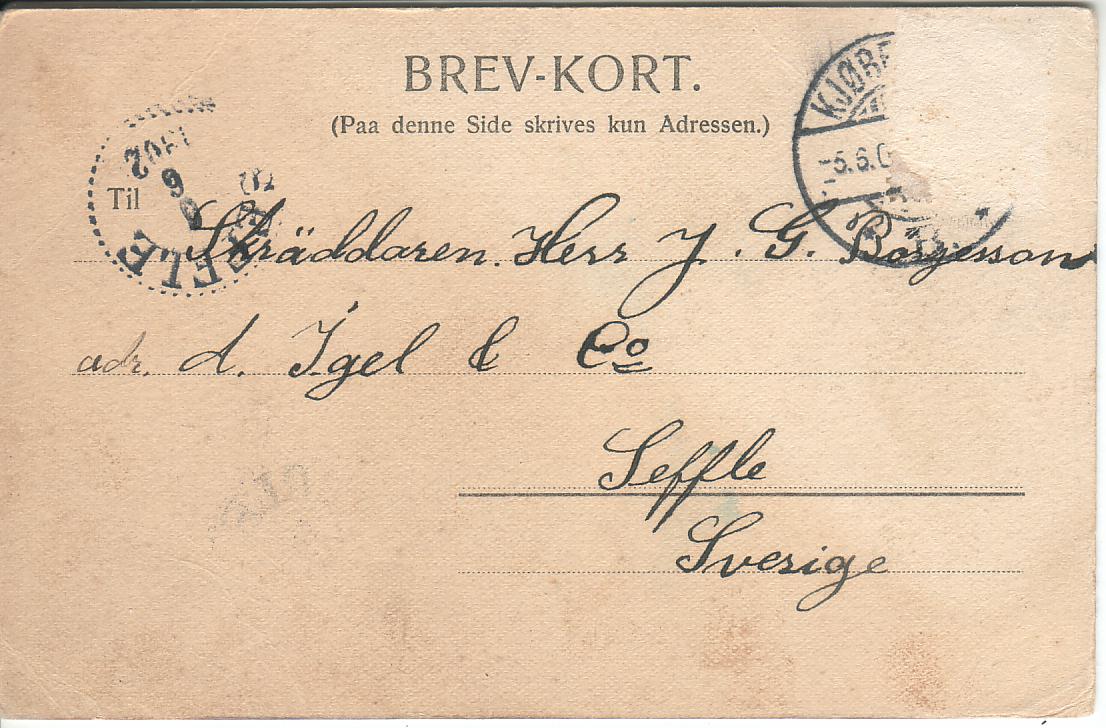 BREV-KORT.
(Paa denne Side skrives kun Adressen.)
KJØBE
5.6.0
1902
6
Til
Skräddaren. Herr J. G. Börjesson
adr. d. Igel & Co
Seffle
Sverige